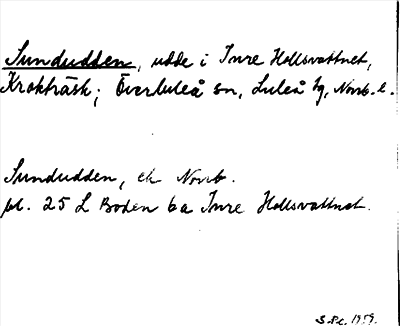 Sundudden, udde i Inre Hollsvattnet,
Krokträsk; Överluleå sn, Luleå tg, Norrb. l.
Sundudden, ek Norrb.
bl. 25 L Boden ba Inre Hollsvattnet.
1959.